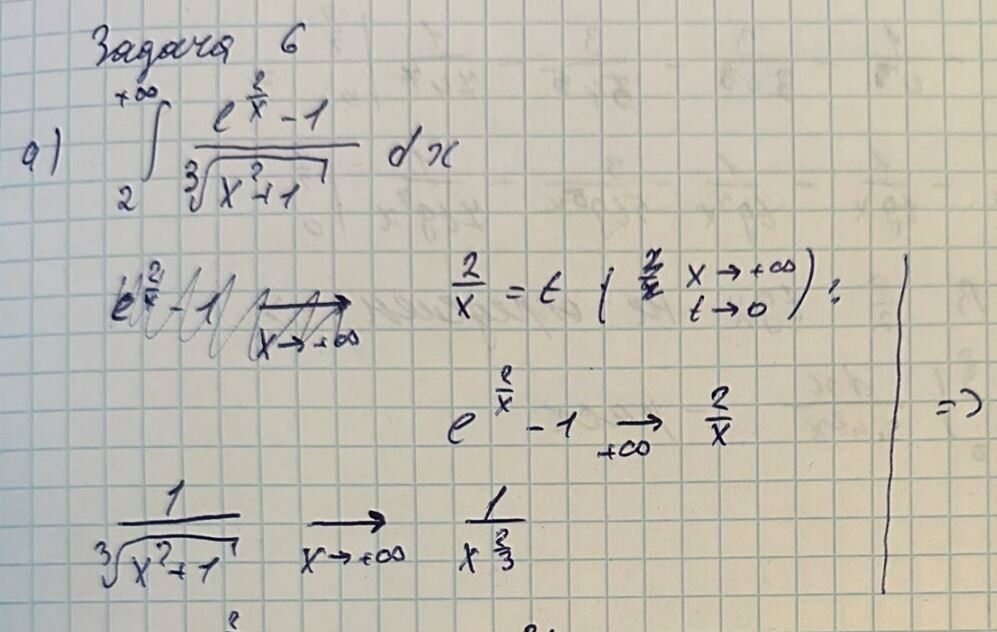 Задача 6
а) ∫₂^{+∞} (e^{2/x} - 1) / ∛(x² + 1) dx
e^{2/x} - 1 ⟶_{x→+∞} 2/x = t ( x→+∞ t→0 ) :
e^{2/x} - 1 ⟶_{+∞} 2/x | =>
1 / ∛(x² + 1) ⟶_{x→+∞} 1 / x^{2/3}